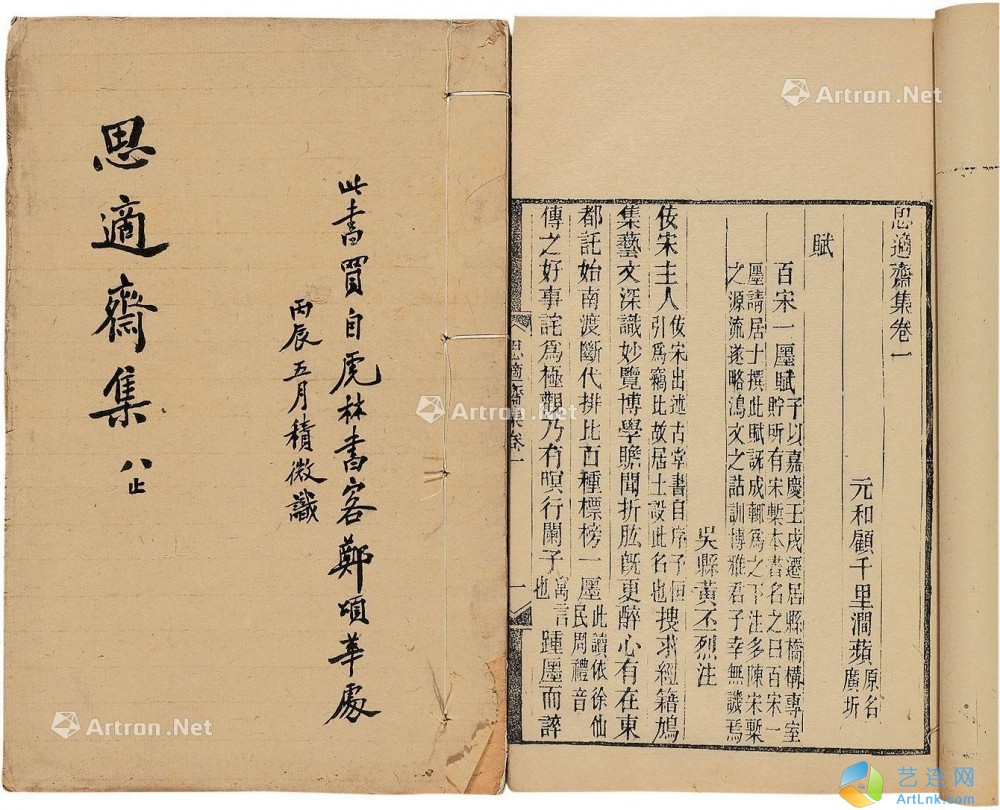 思適齋集 八止
此書買自虎林書客鄭頌華處
丙辰五月積微識
思適齋集卷一
元和顧千里澗蘋 原名廣圻
賦
百宋一廛賦 予以嘉慶壬戌遷居縣橋構專室
貯所有宋槧本書名之曰百宋一
廛請居士撰此賦旣成輒爲之下注多陳宋槧
之源流遂略鴻文之詁訓博雅君子幸無譏焉
吳縣黃丕烈注
佞宋主人 佞宋出述古堂書自序予恒引爲竊比故居士設此名也 搜求經籍鳩
集藝文深識妙覽博學贍聞折肱旣更醉心有在東
都託始南渡斷代排比百種標榜一廛 此讀依徐仙民周禮音
傳之好事詫爲極觀乃有暝行闌子 寓言也 踵廛而誶
思適齋集卷一
一
Artron.Net
Artron.Net
Artron.Net
Artron.Net
艺连网
ArtLnk.com